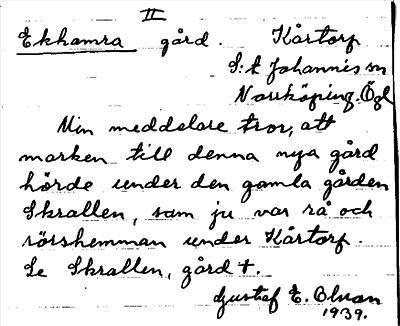 II
Ekhamra gård. Kårtorp
S:t Johannis sn
Norrköping. Ögl
Min meddelare tror, att
marken till denna nya gård
hörde under den gamla gården
Skrallen, som ju var rå och
rörshemman under Kårtorp.
Se Skrallen, gård †.
Gustaf E. Olsson
1939.